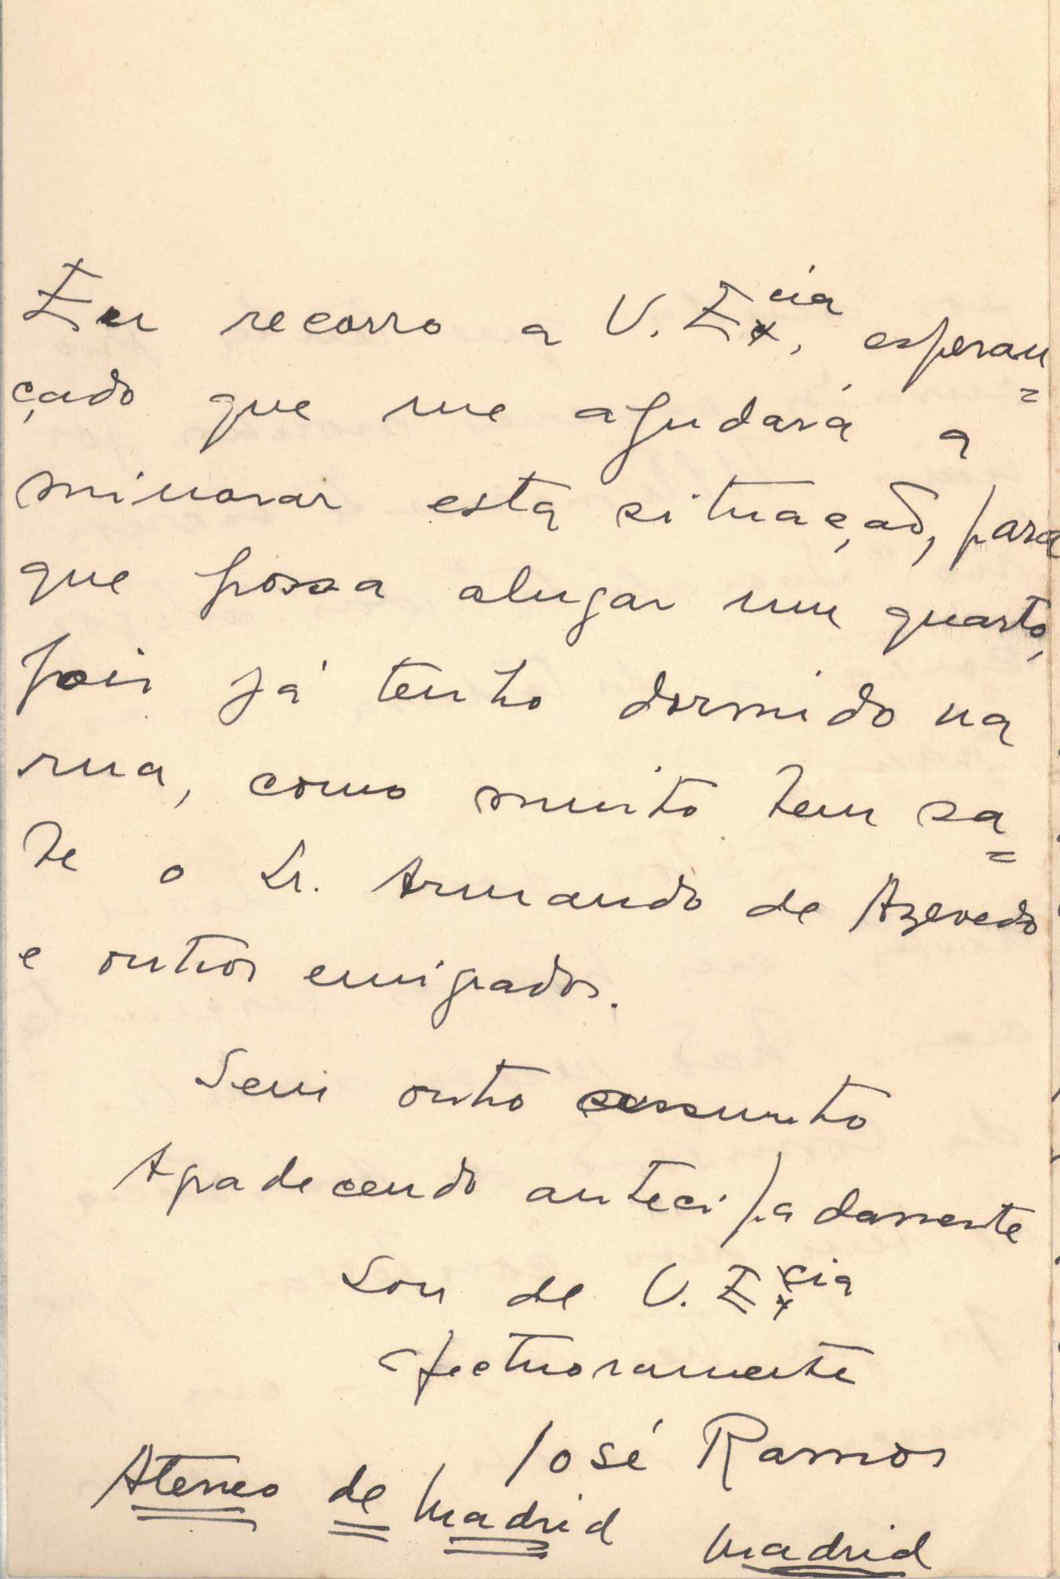 Eu recorro a V. Ex.cia, esperan=
çado que me ajudará a
minorar esta situação, para
que possa alugar um quarto,
pois já tenho dormido na
rua, como muito bem sa=
be o Sr. Armando de Azevedo
e outros emigrados.
Sem outro assunto
Agradecendo antecipadamente
Sou de V. Ex.cia
afectuosamente
José Ramos
Ateneo de Madrid Madrid